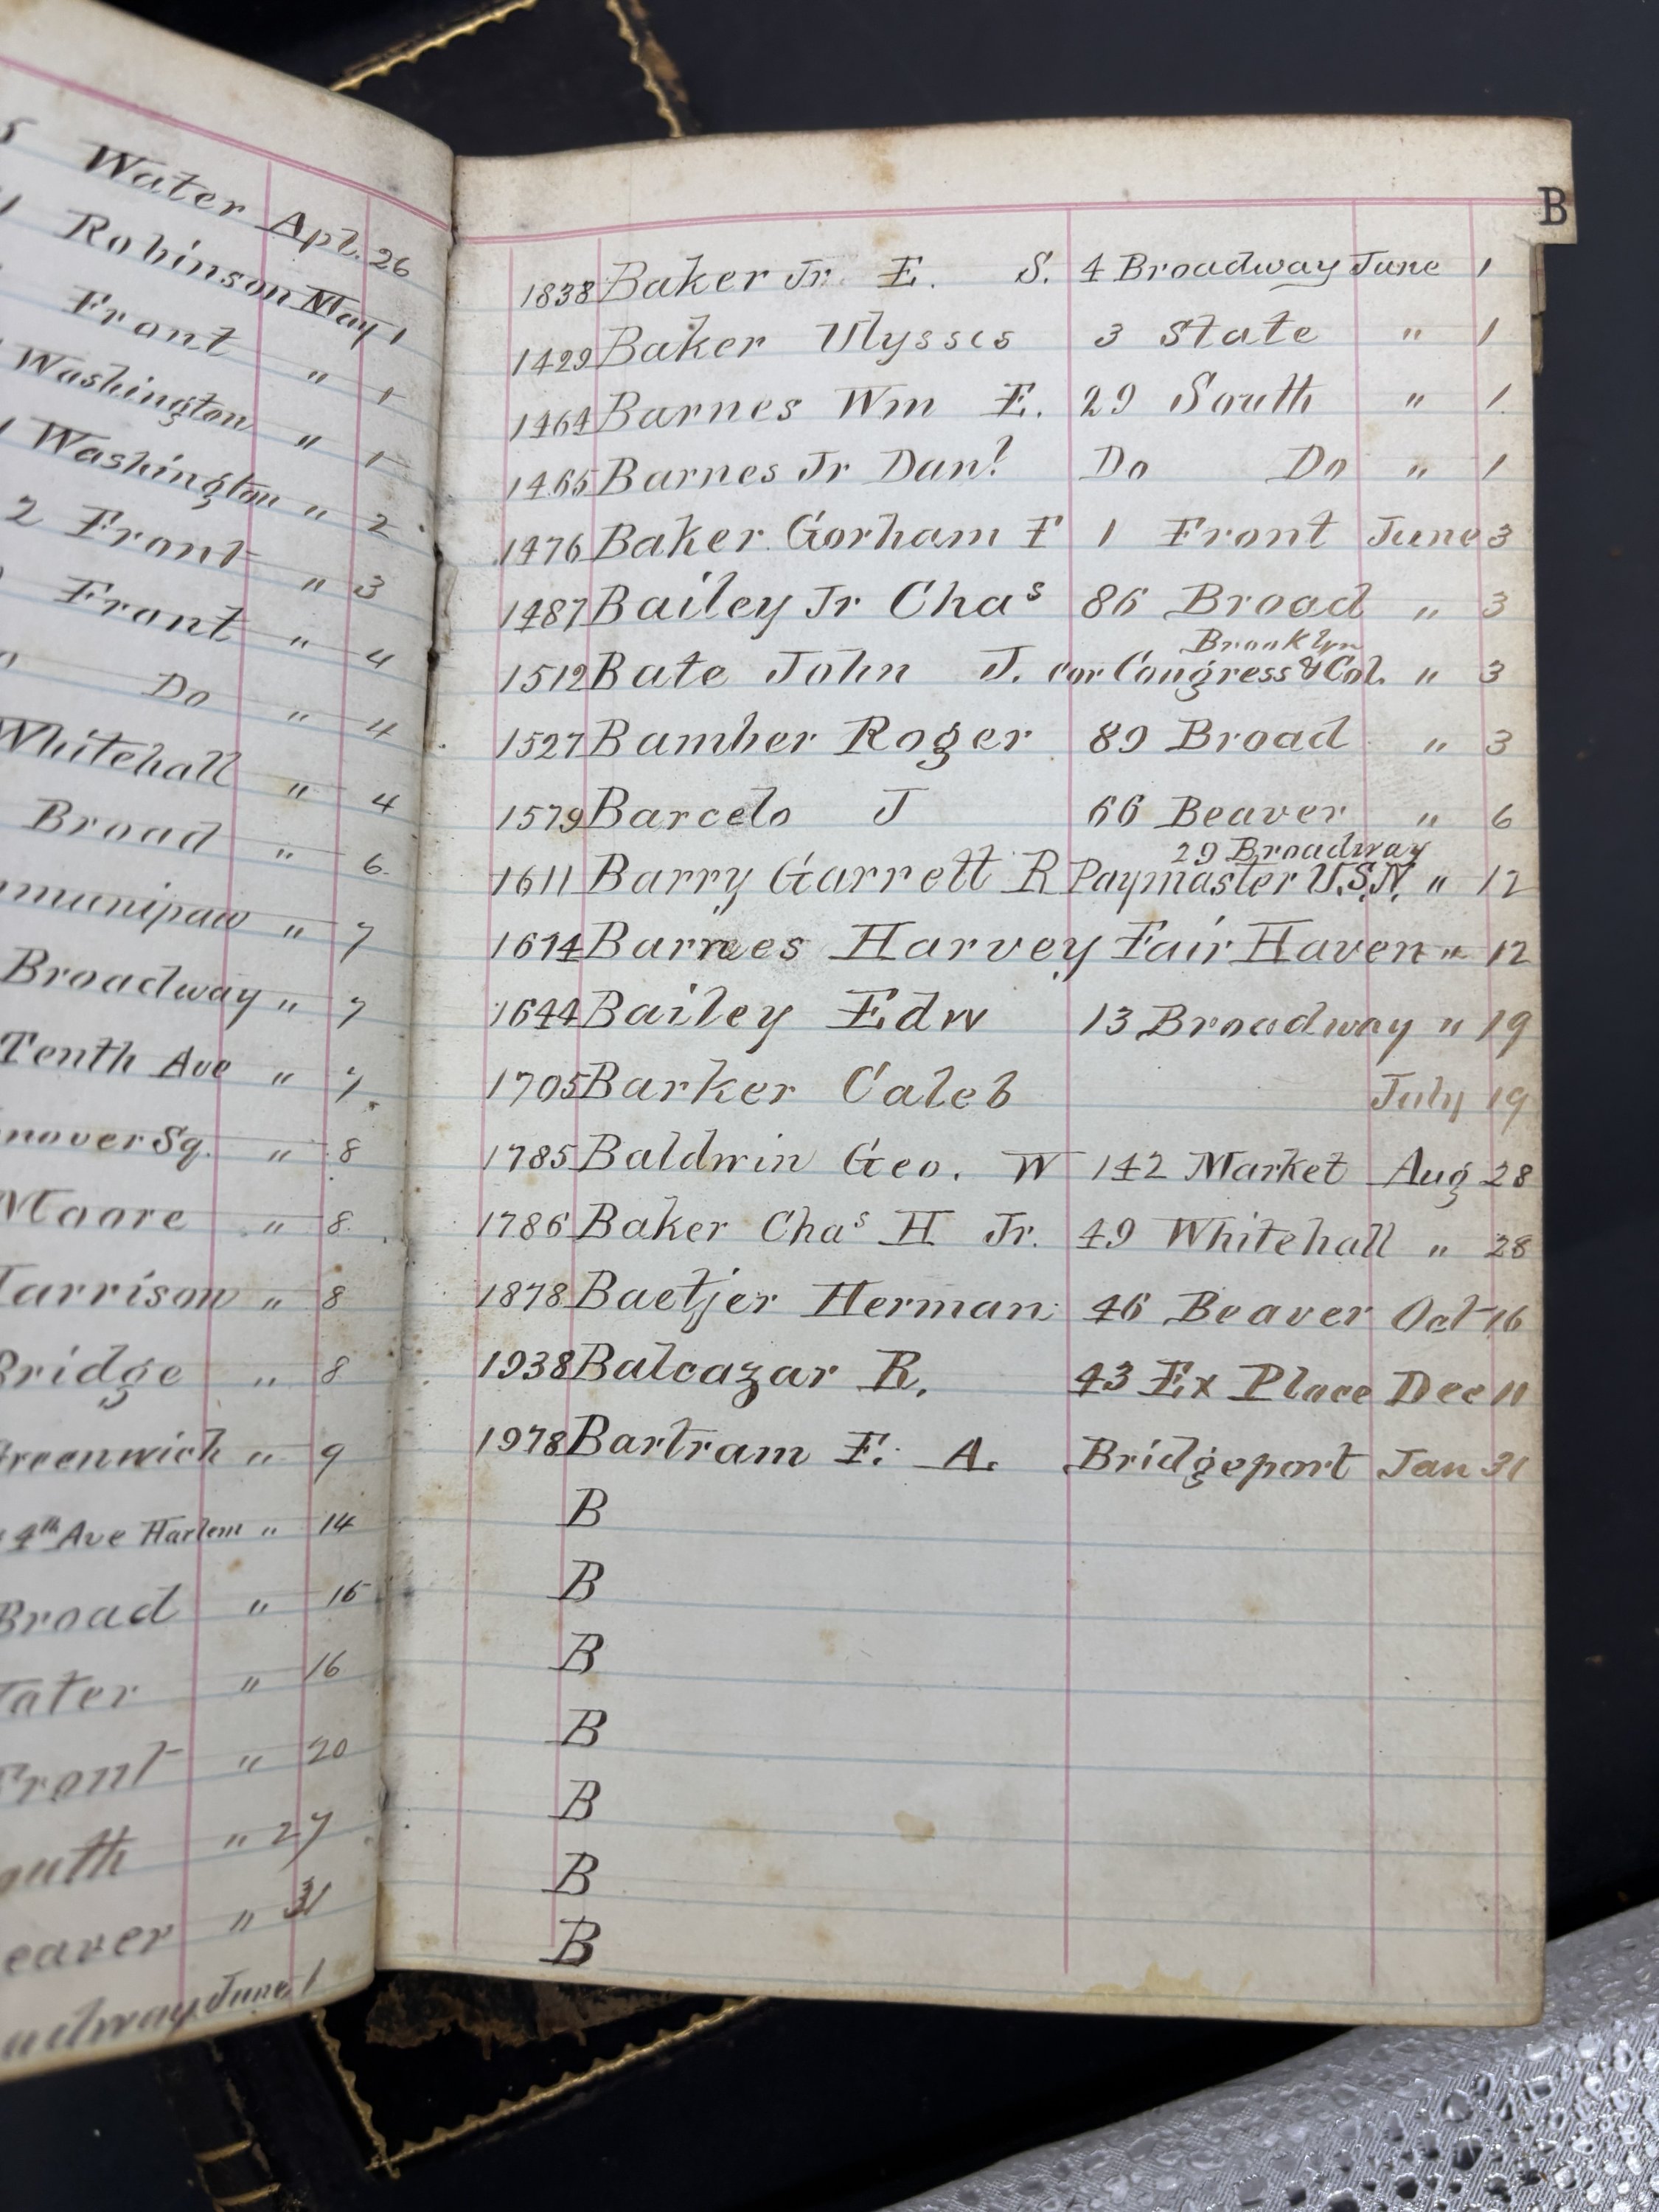 Water Apl. 26
Robinson May 1
Front " 1
Washington " 1
Washington " 2
2 Front " 3
Front " 4
Do " 4
Whitehall " 4
Broad " 6
" 7
Broadway " 7
Tenth Ave " 7
Sq. " 8
Moore " 8
" 8
Bridge " 8
Greenwich " 9
4th Ave Harlem " 14
Broad " 15
" 16
Front " 20
" 27
" 31
June 1
B
1838 Baker Jr. E. S. 4 Broadway June 1
1429 Baker Ulysses 3 State " 1
1464 Barnes Wm E. 29 South " 1
1465 Barnes Jr Danl Do Do " 1
1476 Baker Gorham F 1 Front June 3
1487 Bailey Jr Chas 86 Broad " 3
Brooklyn
1512 Bate John J. cor Congress & Col. " 3
1527 Bamber Roger 89 Broad " 3
1579 Barcelo J 66 Beaver " 6
29 Broadway
1611 Barry Garrett R Paymaster U.S.N. " 12
1614 Barnes Harvey Fair Haven " 12
1644 Bailey Edw 13 Broadway " 19
1705 Barker Caleb July 19
1785 Baldwin Geo. W 142 Market Aug 28
1786 Baker Chas H Jr. 49 Whitehall " 28
1878 Baetjer Herman 46 Beaver Oct 16
1938 Balcazar R. 43 Ex Place Dec 11
1978 Bartram F. A. Bridgeport Jan 31
B
B
B
B
B
B
B